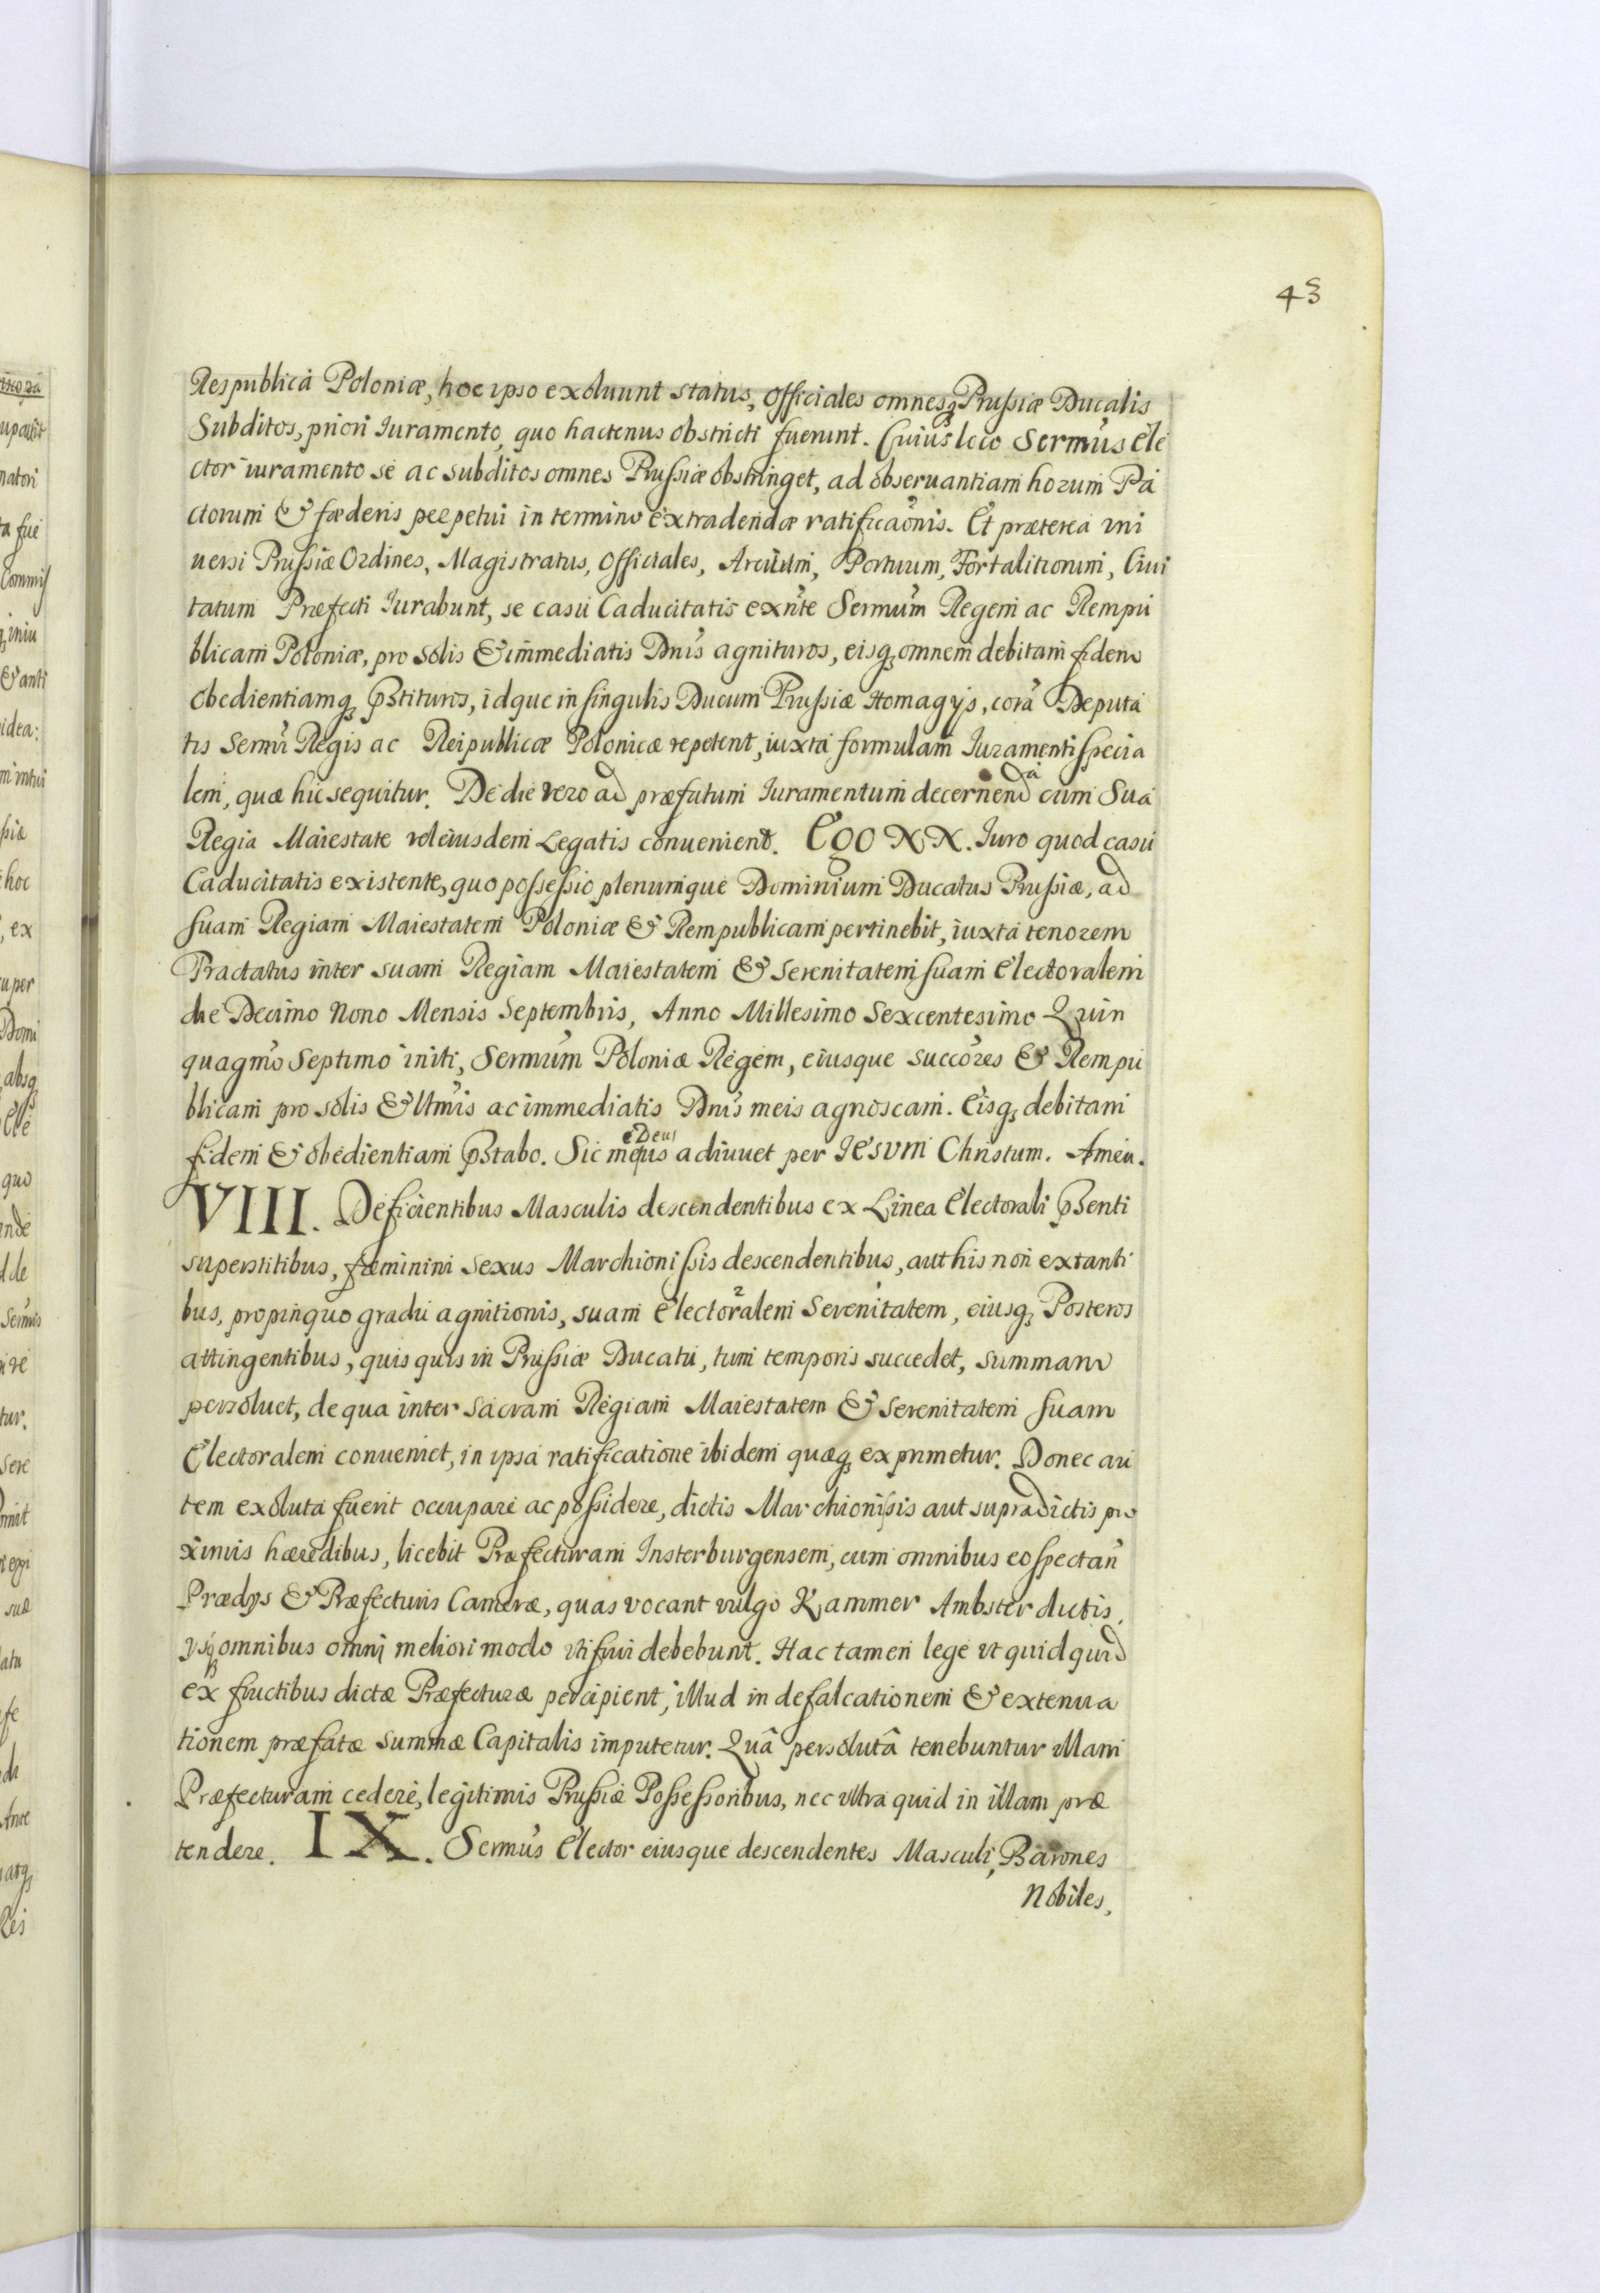 43
Respublica Poloniæ, hoc ipso exoluunt status, Officiales omnesq; Prussiæ Ducalis
Subditos, priori Iuramento, quo hactenus obstricti fuerunt. Cuius loco Sermus Ele
ctor iuramento se ac subditos omnes Prussiæ obstringet, ad obseruantiam horum Pa
ctorum & fæderis perpetui in termino extradendæ ratificaõnis. Et præterea vni
uersi Prussiæ Ordines, Magistratus, Officiales, Arcium, Portuum, Fortalitiorum, Ciui
tatum Præfecti Iurabunt, se casu Caducitatis exn̄te Sermum Regem ac Rempu
blicam Poloniæ, pro solis & immediatis Dnis agnituros, eisq; omnem debitam fidem
obedientiamq; p̄stituros, idque in singulis Ducum Prussiæ Homagijs, corã Deputa
tis Sermi Regis ac Reipublicæ Polonicæ repetent, iuxta formulam Iuramenti specia
lem, quæ hic sequitur. De die vero ad præfatum Iuramentum decernenda cum Sua
Regia Maiestate vel eiusdem Legatis convenient. Ego N N. Iuro quod casu
Caducitatis existente, quo possessio plenumque Dominium Ducatus Prussiæ, ad
suam Regiam Maiestatem Poloniæ & Rempublicam pertinebit, iuxta tenorem
Tractatus inter suam Regiam Maiestatem & Serenitatem suam Electoralem
die Decimo Nono Mensis Septembris, Anno Millesimo Sexcentesimo Quin
quagmo Septimo initi, Sermum Poloniæ Regem, eiusque succõres & Rempu
blicam pro solis & Vtmis ac immediatis Dnis meis agnoscam. Eisq; debitam
fidem & obedientiam p̄stabo. Sic me Deus adiuuet per IESVM Christum. Amen.
VIII. Deficientibus Masculis descendentibus ex Linea Electorali p̄senti
superstitibus, fæminini sexus Marchionissis descendentibus, aut his non extanti
bus, propinquo gradu agnitionis, suam Electoralem Serenitatem, eiusq; Posteros
attingentibus, quisquis in Prussiæ Ducatu, tum temporis succedet, summam
persoluet, de qua inter Sacram Regiam Maiestatem & Serenitatem suam
Electoralem conueniet, in ipsa ratificatione ibidem quæq; exprimetur. Donec au
tem exoluta fuerit occupare ac possidere, dictis Marchionissis aut supradictis pro
ximis hæredibus, licebit Præfecturam Insterburgensem, cum omnibus eo spectañ
Prædijs & Præfecturis Cameræ, quas vocant vulgo Kammer Ambster dictis,
ijsq; omnibus omni meliori modo vti frui debebunt. Hac tamen lege vt quidquid
ex fructibus dictæ Præfecturæ percipient, illud in defalcationem & extenua
tionem præfatæ summæ Capitalis imputetur. Quâ persolutâ tenebuntur illam
Præfecturam cedere, legitimis Prussiæ Possessoribus, nec vltra quid in illam præ
tendere. IX. Sermus Elector eiusque descendentes Masculi, Barones
Nobiles,